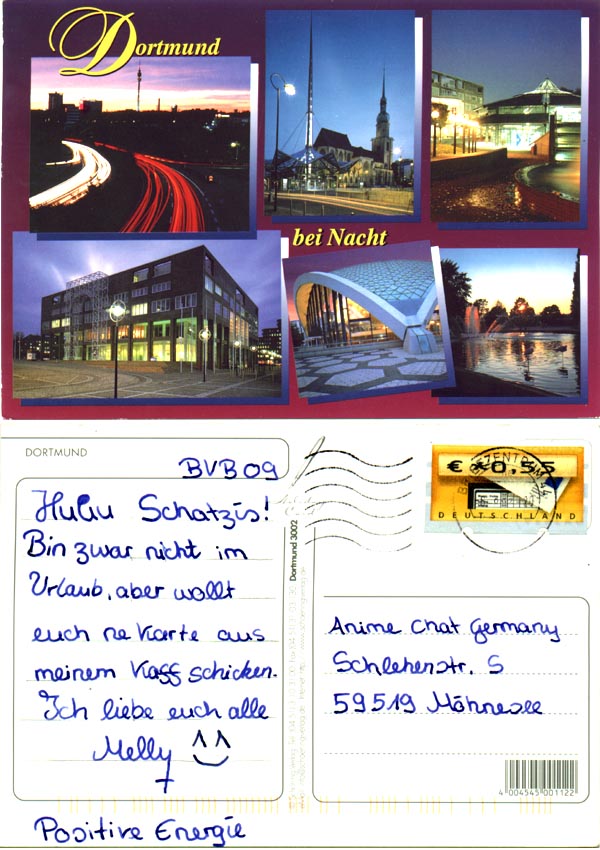 Dortmund
bei Nacht
DORTMUND
BVB 09
HuHu Schatzis!
Bin zwar nicht im
Urlaub, aber wollt
euch ne Karte aus
meinem Kaff schicken.
Ich liebe euch alle
Melly
Positive Energie
Dortmund 3002
€ *0,55
DEUTSCHLAND
Anime Chat Germany
Schlehenstr. 5
59519 Möhnesee
4 004545 001122